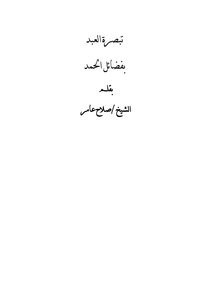 تبصرة العبد
بفضائل الحمد
بقلم
الشيخ/صلاح عامر